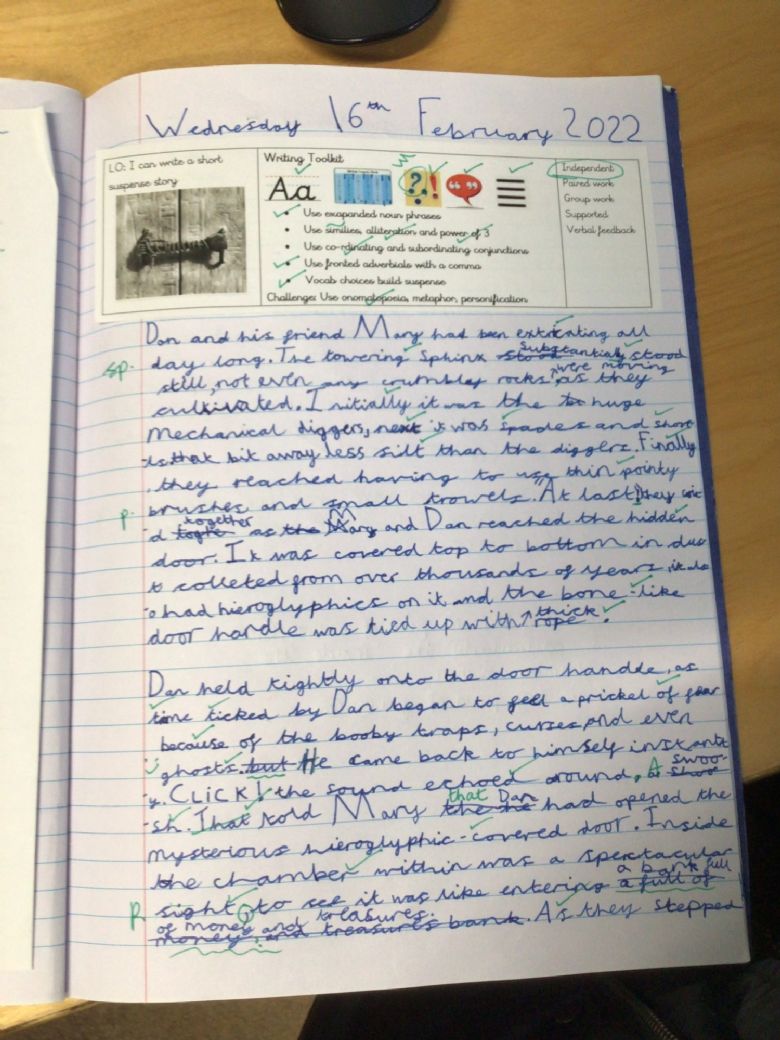 Wednesday 16th February 2022
LO: I can write a short
suspense story
Writing Toolkit
Aa
Use exapanded noun phrases
Use similies, alliteration and power of 3
Use co-rdinating and subordinating conjunctions
Use fronted adverbials with a comma
Vocab choices build suspense
Challenge: Use onomatopoeia, metaphor, personification
Independent
Paired work
Group work
Supported
Verbal feedback
Dan and his friend Mary had been all
sp. day long. The towering Sphinx stood substantially stood
still, not even any crumbley rocks were moving as they
cultivated. Initially it was the huge
mechanical diggers, next it was spades and shov-
els that bit away less silt than the diggers. Finally
they reached having to use thin pointy
brushes and small trowels. "At last!" they
p. d together as the Mary and Dan reached the hidden
door. It was covered top to bottom in dus-
t colleted from over thousands of years, it als-
o had hieroglyphics on it and the bone-like
door handle was tied up with thick rope.
Dan held tightly onto the door handle, as
time ticked by Dan began to feel a prickel of fear
because of the booby traps, curses, and even
ghosts. but He came back to himself instantl-
y. CLICK! the sound echoed around, A swoo-
sh. That told Mary that Dan had opened the
mysterious hieroglyphic-covered door. Inside
the chamber within was a sperctacular
P sight to see it was like entering a bank full
of money and treasures. As they stepped